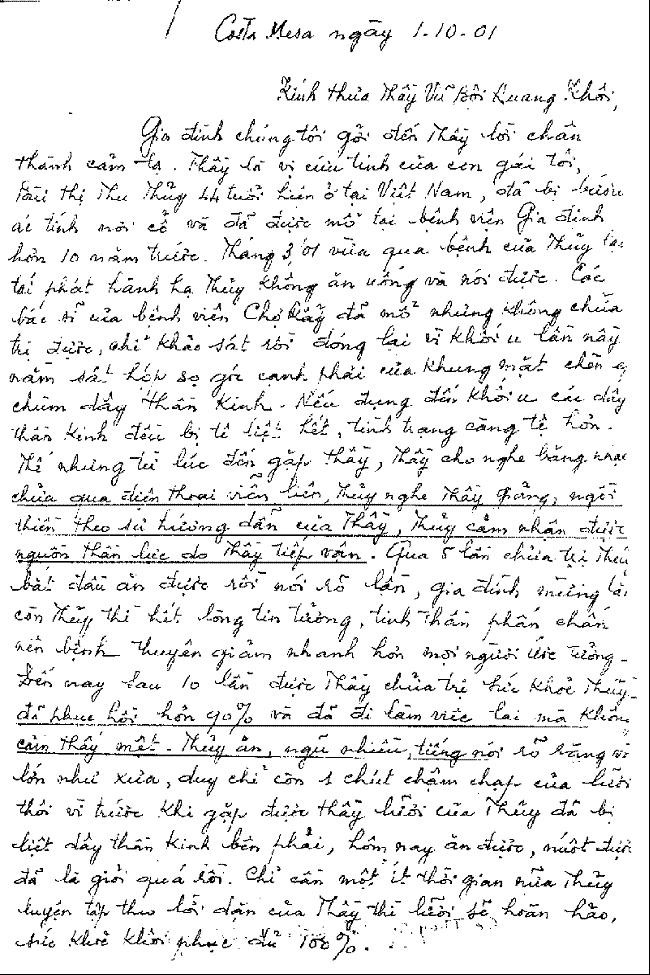 Costa Mesa ngày 1-10-01
Kính thưa Thầy Vũ Bội Quang Khôi,
Gia đình chúng tôi gởi đến Thầy lời chân
thành cảm tạ. Thầy là vị cứu tinh của con gái tôi,
Thị Thu Thủy 44 tuổi hiện ở tại Việt Nam, đã bị bướu
ác tính nơi cổ và đã được mổ tại bệnh viện Gia đình
hơn 10 năm trước. Tháng 3/01 vừa qua bệnh của Thủy lại
tái phát hành hạ Thủy không ăn uống và nói được. Các
bác sĩ của bệnh viện Chợ Rẫy đã mổ nhưng không chữa
trị được, chỉ khảo sát rồi đóng lại vì khối u lần này
nằm sát hộp sọ góc cạnh phải của khung mặt chèn
chùm dây thần kinh. Nếu đụng đến khối u các dây
thần kinh đều bị tê liệt hết, tình trạng càng tệ hơn.
Thế nhưng từ lúc đến gặp thầy, Thầy cho nghe băng nhạc
chữa qua điện thoại viễn liên, Thủy nghe Thầy giảng, ngồi
thiền theo sự hướng dẫn của Thầy, Thủy cảm nhận được
nguồn thần lực do Thầy tiếp vận. Qua 5 lần chữa trị Thủy
bắt đầu ăn được rồi nói rõ lần, gia đình mừng
còn Thủy thì hết lòng tin tưởng, tinh thần phấn chấn
nên bệnh thuyên giảm nhanh hơn mọi người ước tưởng.
Đến nay sau 10 lần được Thầy chữa trị sức khỏe Thủy
đã phục hồi hơn 90% và đã đi làm việc lại mà không
cảm thấy mệt. Thủy ăn, ngủ nhiều, tiếng nói rõ ràng
lớn như xưa, duy chỉ còn 1 chút chậm chạp của lưỡi
thôi vì trước khi gặp được thầy lưỡi của Thủy đã bị
liệt dây thần kinh bên phải, hôm nay ăn được, nuốt được
đã là giỏi quá rồi. Chỉ cần một ít thời gian nữa Thủy
luyện tập theo lời dặn của Thầy thì lưỡi sẽ hoàn hảo,
sức khỏe khôi phục đủ 100%.